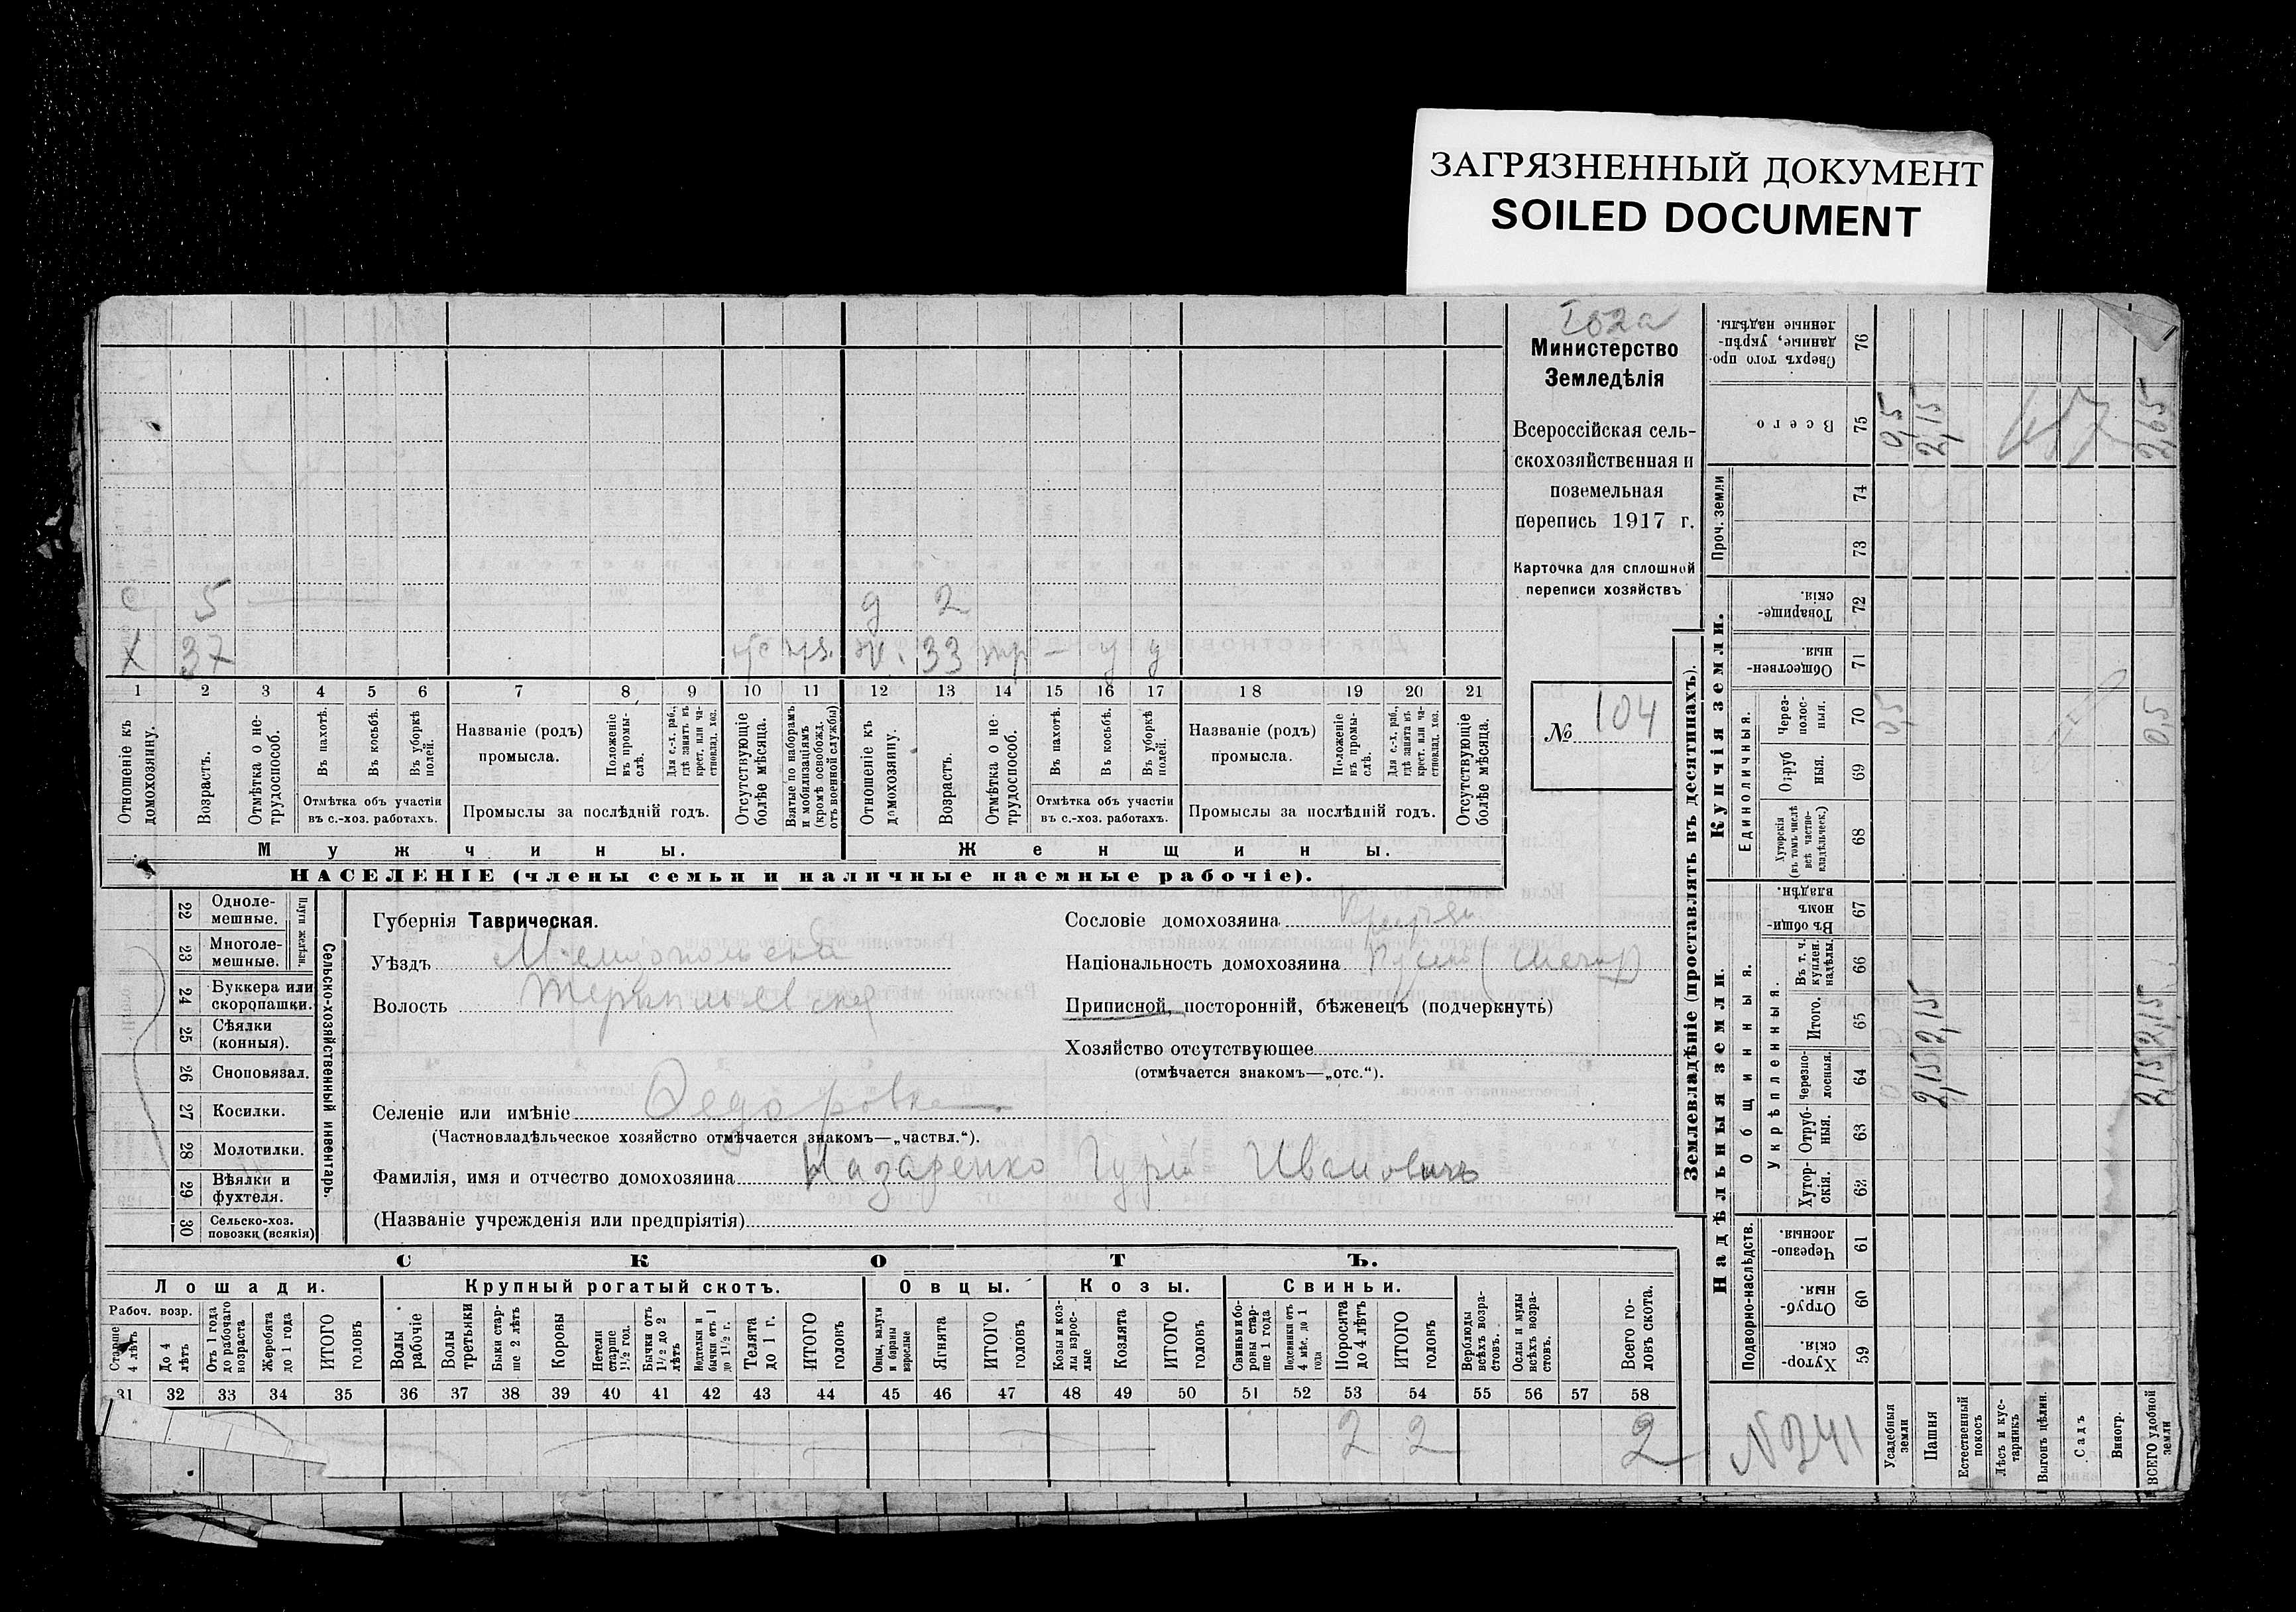 ЗАГРЯЗНЕННЫЙ ДОКУМЕНТ
SOILED DOCUMENT
Министерство
Земледѣлія
Всероссійская сель-
скохозяйственная и
поземельная
перепись 1917 г.
Карточка для сплошной
переписи хозяйствъ
№ 104
с 5 д 2
х 37 ж. 33
1 2 3 4 5 6 7 8 9 10 11 12 13 14 15 16 17 18 19 20 21
Отношеніе къ домохозяину.
Возрастъ.
Отмѣтка о не-трудоспособ.
Въ пахотѣ.
Въ косьбѣ.
Въ уборкѣ полей.
Названіе (родъ) промысла.
Положеніе въ промы-слѣ.
Для с.-х. раб., гдѣ занятъ въ крест. или ча-стновлад. хоз.
Отсутствующіе болѣе мѣсяца.
Взятые по наборамъ и мобилизаціямъ (кромѣ освобожд. отъ военной службы)
Отношеніе къ домохозяину.
Возрастъ.
Отмѣтка о не-трудоспособ.
Въ пахотѣ.
Въ косьбѣ.
Въ уборкѣ полей.
Названіе (родъ) промысла.
Положеніе въ промы-слѣ.
Для с.-х. раб., гдѣ занята въ крест. или ча-стновлад. хоз.
Отсутствующіе болѣе мѣсяца.
Отмѣтка объ участіи въ с.-хоз. работахъ.
Промыслы за послѣдній годъ.
Отмѣтка объ участіи въ с.-хоз. работахъ.
Промыслы за послѣдній годъ.
Мужчины.
Женщины.
НАСЕЛЕНІЕ (члены семьи и наличные наемные рабочіе).
Сельско-хозяйственный инвентарь.
Плуги желѣзн.
22 Одноле-мешные.
23 Многоле-мешные.
24 Буккера или скоропашки.
25 Сѣялки (конныя).
26 Сноповязал.
27 Косилки.
28 Молотилки.
29 Вѣялки и фухтеля.
30 Сельско-хоз. повозки (всякія)
Губернія Таврическая.
Уѣздъ Мелитопольскій
Волость
Селеніе или имѣніе Федоровка
(Частновладѣльческое хозяйство отмѣчается знакомъ—„частвл.“).
Фамилія, имя и отчество домохозяина Назаренко Гурій Ивановичъ
(Названіе учрежденія или предпріятія)
Сословіе домохозяина
Національность домохозяина
Приписной, посторонній, бѣженецъ (подчеркнуть)
Хозяйство отсутствующее
(отмѣчается знакомъ—„отс.“).
СКОТЪ.
Лошади. Крупный рогатый скотъ. Овцы. Козы. Свиньи.
Рабоч. возр.
Старше 4 лѣтъ
До 4 лѣтъ
Отъ 1 года до рабочаго возраста
Жеребята до 1 года
ИТОГО головъ
Волы рабочіе
Волы третьяки
Быки стар-ше 2 лѣтъ
Коровы
Нетели старше 1½ год.
Бычки отъ 1½ до 2 лѣтъ
Подтелки и бычки отъ 1 до 1½ г.
Телята до 1 г.
ИТОГО головъ
Овцы, валухи и бараны взрослые
Ягнята
ИТОГО головъ
Козы и коз-лы взрос-лые
Козлята
ИТОГО головъ
Свиньи и бо-ровы стар-ше 1 года
Подсвинки отъ 4 мѣс. до 1 года
Поросята до 4 лѣтъ
ИТОГО головъ
Верблюды всѣхъ возра-стовъ.
Ослы и мулы всѣхъ возра-стовъ.
Всего го-ловъ скота.
31 32 33 34 35 36 37 38 39 40 41 42 43 44 45 46 47 48 49 50 51 52 53 54 55 56 57 58
2 2 2
Землевладѣніе (проставлять въ десятинахъ).
Надѣльныя земли.
Купчія земли.
Проч. земли
Подворно-наслѣдств.
Общинныя.
Укрѣпленныя.
Единоличныя.
Сверхъ того про-данные, укрѣп-ленные надѣлы. 76
Всего 75
74
73
Товарище-скія. 72
Обществен-ныя. 71
Через-полос-ныя. 70
Отруб-ныя. 69
Хуторскія (въ томъ числѣ всѣ частно-владѣльческ.) 68
Въ общи-номъ владѣн. 67
Въ т. ч. куплен. надѣлы. 66
Итого. 65
Черезпо-лосныя. 64
Отруб-ныя. 63
Хутор-скія. 62
Черезпо-лосныя. 61
Отруб-ныя. 60
Хутор-скія. 59
Усадебныя земли 0,5 0,5
Пашня 2,15 2,15 2,15
Естественный покосъ
Лѣсъ и кус-тарникъ
Выгонъ цѣлин.
Садъ
Виногр.
ВСЕГО удобной земли 2,15 2,15 0,5 2,65
N 241